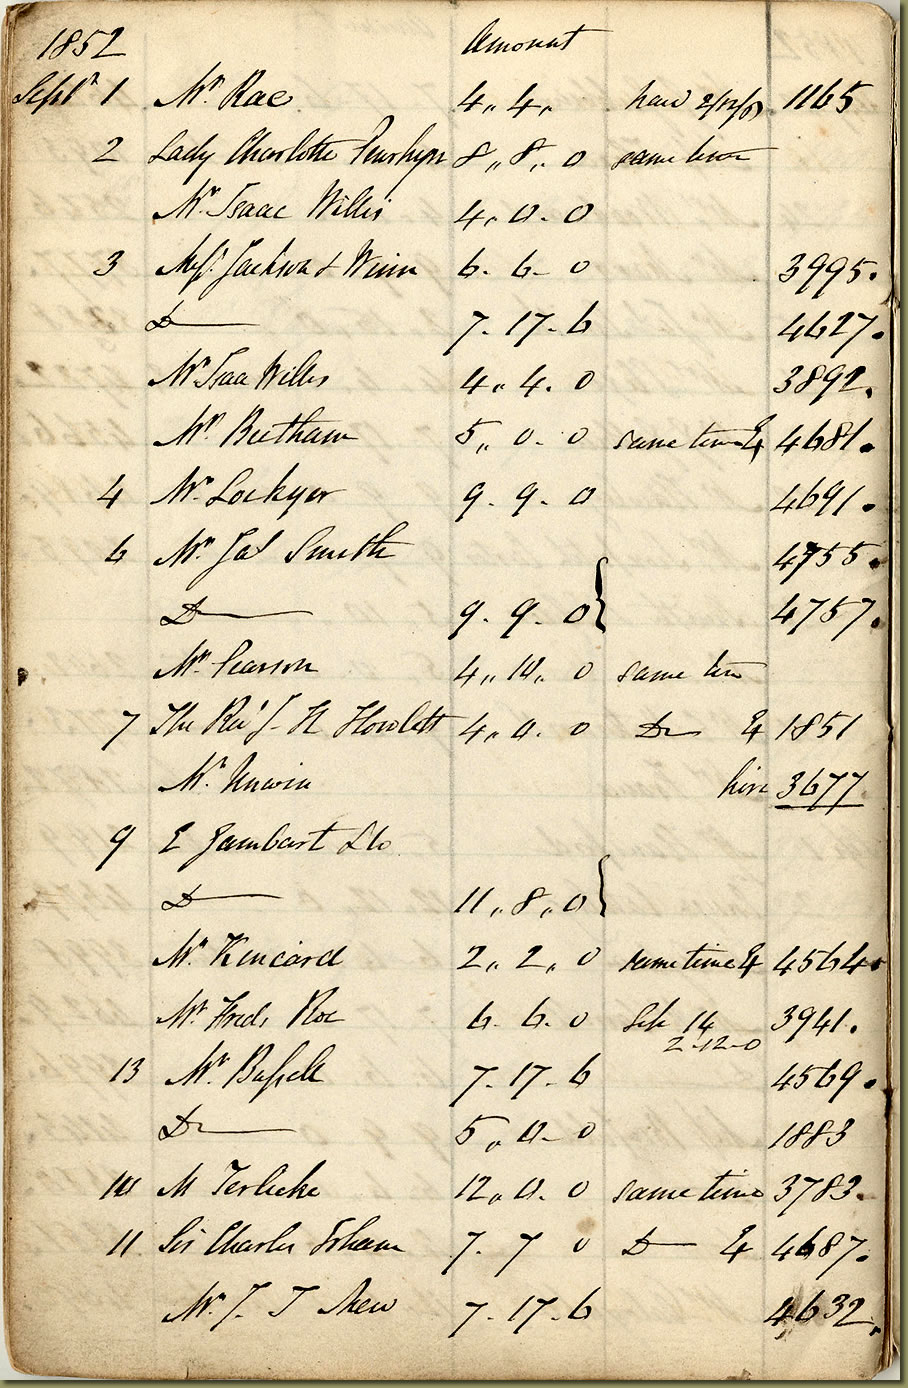 1852 Amount
Septr 1 Mr. Rae 4,, 4,, 1165
2 Lady Charlotte 8,, 8,, 0 same time
Mr. Isaac Willis 4,, 0 - 0
3 Mess. Jackson & Winn 6 - 6 - 0 3995.
Do 7 - 17 - 6 4627.
Mr Isaa Willis 4,, 4 - 0 3892.
Mr. Beetham 5,, 0 - 0 same time & 4681.
4 Mr. Lockyer 9 - 9 - 0 4691.
6 Mr. Jas Smith 4755.
Do 9 - 9 - 0 } 4757.
Mr. Pearson 4,, 10,, 0 same time
7 The Revd J - H Howlett 4,, 0 - 0 Do & 1851
Mr. Unwin hire 3677
9 E Gambart & Co
Do 11,, 8,, 0 }
Mr. Kincaird 2,, 2,, 0 same time & 4564.
Mr. Fredk Roe 6 - 6 - 0 14 3941.
2-12-0
13 Mr. Bussell 7 - 17 - 6 4569.
Do 5,, 0 - 0 1883
10 M Terlicke 12,, 0 - 0 same time 3783.
11 Sir Charles Isham 7 - 7 0 Do & 4687.
Mr. J. J 7 - 17 - 6 4632.